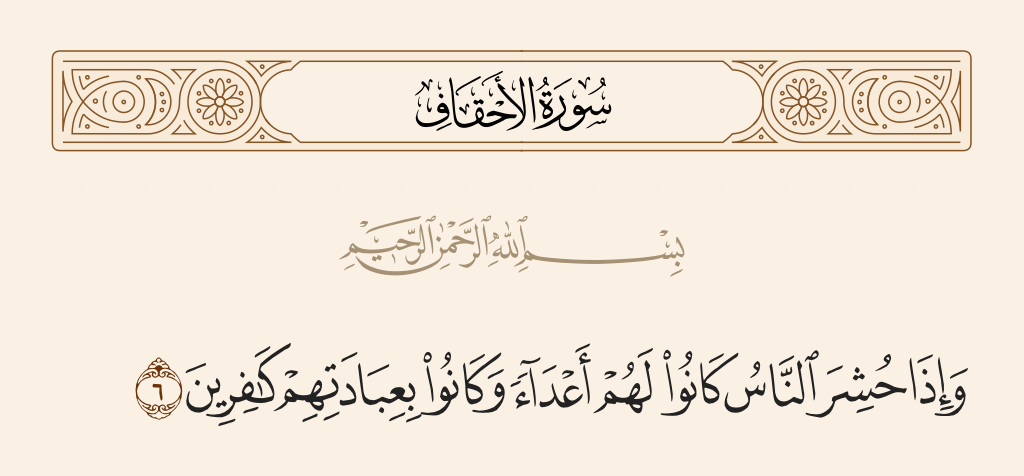 سُورَةُ الأَحْقَافِ
بِسْمِ ٱللَّهِ ٱلرَّحْمَٰنِ ٱلرَّحِيمِ
وَإِذَا حُشِرَ ٱلنَّاسُ كَانُوا۟ لَهُمْ أَعْدَآءً وَكَانُوا۟ بِعِبَادَتِهِمْ كَٰفِرِينَ ٦